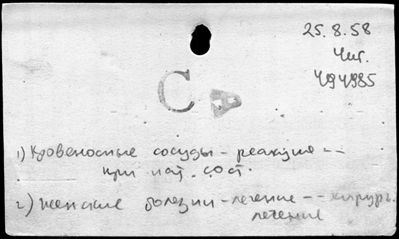 25.8.58
Чит.
494985
С А
1) Кровеносные сосуды - реакция --
при пат. сост.
2) Женские болезни - лечение -- хирург.
лечение